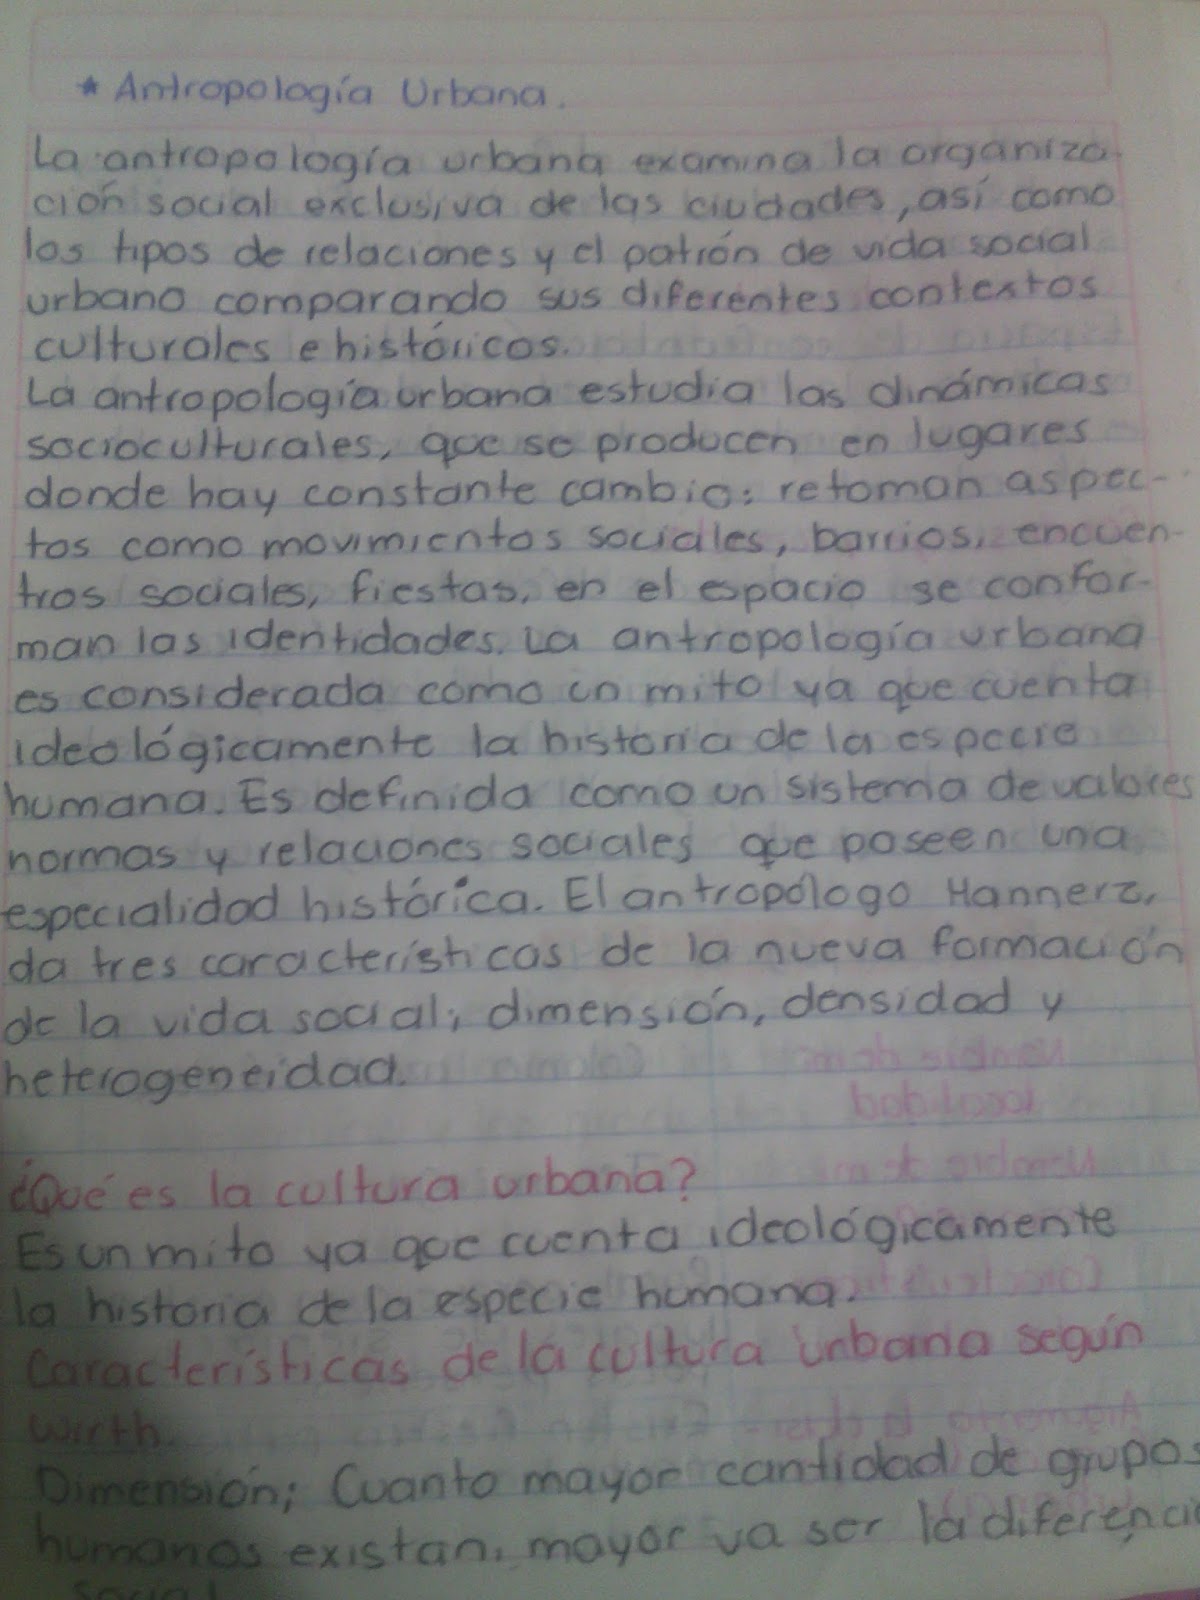 * Antropología Urbana.
La antropología urbana examina la organiza-
ción social exclusiva de las ciudades, así como
los tipos de relaciones y el patrón de vida social
urbano comparando sus diferentes contextos
culturales e históricos.
La antropología urbana estudia las dinámicas
socioculturales, que se producen en lugares
donde hay constante cambio: retoman aspec-
tos como movimientos sociales, barrios, encuen-
tros sociales, fiestas, en el espacio se confor-
man las identidades. La antropología urbana
es considerada como un mito ya que cuenta
ideológicamente la historia de la especie
humana. Es definida como un sistema de valores
normas y relaciones sociales que poseen una
especialidad histórica. El antropólogo Hannerz,
da tres características de la nueva formación
de la vida social; dimensión, densidad y
heterogeneidad.
¿Qué es la cultura urbana?
Es un mito ya que cuenta ideológicamente
la historia de la especie humana.
Características de la cultura urbana según
wirth.
Dimensión; Cuanto mayor cantidad de grupos
humanos existan, mayor va ser la diferencia
social